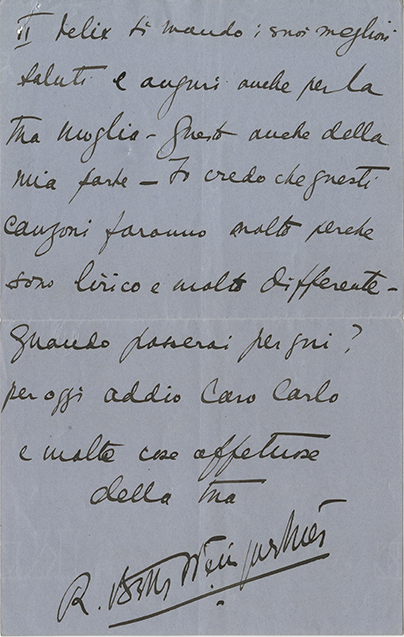 Il Felix ti mando i suoi megliori
saluti e auguri anche per la
tua moglia - Questo anche della
mia parte - Io credo che questi
canzoni faranno molto perche
sono lirico e molto differente -
Quando passerai per qui?
per oggi addio Caro Carlo
e molte cose affettuose
della tua
R. Betty Weingartner